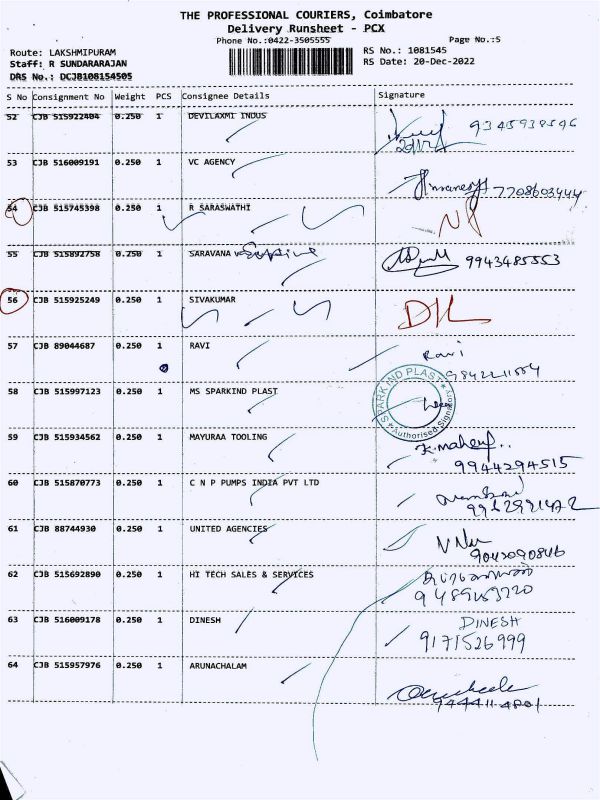 THE PROFESSIONAL COURIERS, Coimbatore
Delivery Runsheet - PCX
Phone No.:0422-3505555 Page No.:5
Route: LAKSHMIPURAM RS No.: 1081545
Staff: R SUNDARARAJAN RS Date: 20-Dec-2022
DRS No.: DCJB108154505
S No Consignment No Weight PCS Consignee Details Signature
52 CJB 515922404 0.250 1 DEVILAXMI INDUS
53 CJB 516009191 0.250 1 VC AGENCY
7708603444
54 CJB 515745398 0.250 1 R SARASWATHI
55 CJB 515892758 0.250 1 SARAVANA 9943485553
56 CJB 515925249 0.250 1 SIVAKUMAR
DIL
57 CJB 89044687 0.250 1 RAVI Ravi
58 CJB 515997123 0.250 1 MS SPARKIND PLAST
SPARKIND PLAST
Authorised Signatory
59 CJB 515934562 0.250 1 MAYURAA TOOLING
9944294515
60 CJB 515870773 0.250 1 C N P PUMPS INDIA PVT LTD
61 CJB 88744930 0.250 1 UNITED AGENCIES
9043090846
62 CJB 515692890 0.250 1 HI TECH SALES & SERVICES
63 CJB 516009178 0.250 1 DINESH DINESH
9171526999
64 CJB 515957976 0.250 1 ARUNACHALAM
9444114801